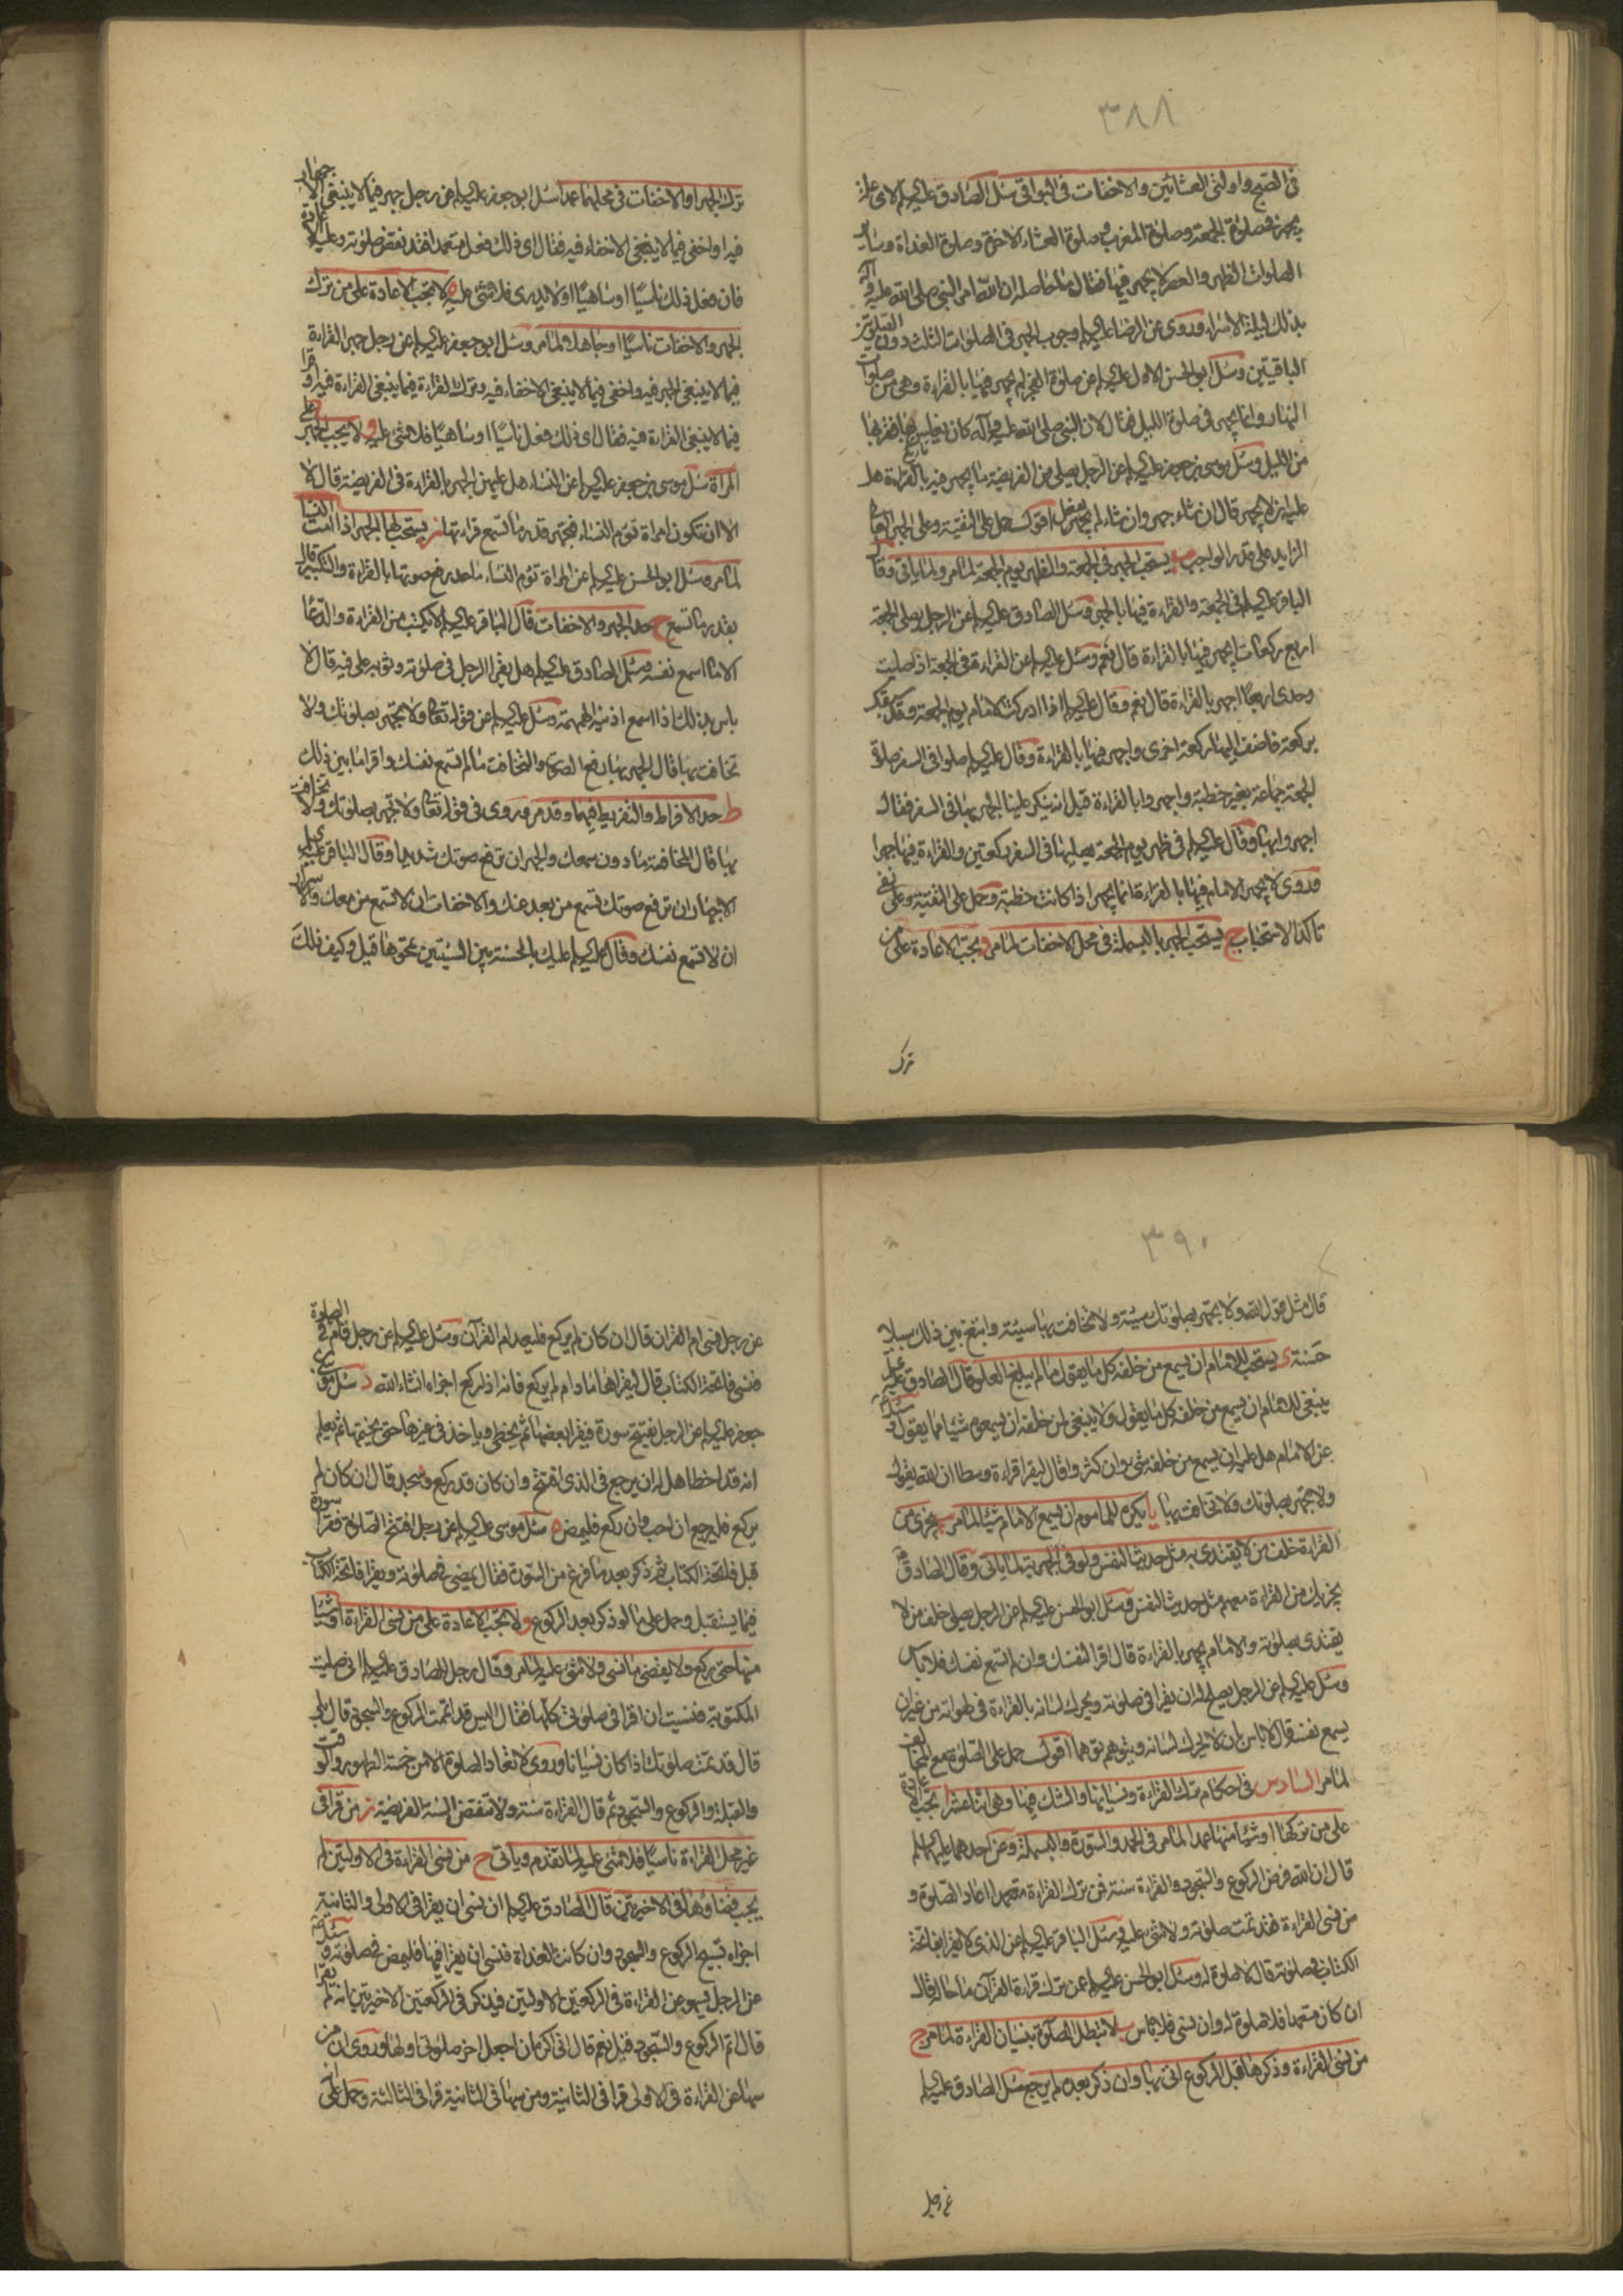 ٣٨٨
فى الصبح واولتى العشائين والاخفات فى البواقى سئل الصادق عليه السلام لاى علة
يجهر فى صلوة الجمعة وصلوة المغرب وصلوة العشاء الاخرة وصلوة الغداة وساير
الصلوات الظهر والعصر لا يجهر فيها فقال ما حاصله ان الله امر النبى صلى الله عليه وآله
بذلك ليلة الاسراء وروى عن الرضا عليه السلام وجوب الجهر فى الصلوات الثلث دون الصلوتين
الباقيتين وسئل ابو الحسن الاول عليه السلام عن صلوة الفجر لم يجهر فيها بالقراءة وهى من صلوات
النهار وانما يجهر فى صلوة الليل فقال لان النبى صلى الله عليه وآله كان يغلس بها فقربها
من الليل وسئل موسى بن جعفر عليه السلام عن الرجل يصلى من الفريضة ما يجهر فيه بالقراءة هل
عليه ان لا يجهر قال ان شاء جهر وان شاء لم يفعل اقول حمل على التقية وعلى الجهر العالى
الزايد على قدر الواجب ب يستحب الجهر فى الجمعة والظهر يوم الجمعة لما مر ولما ياتى وقال
الباقر عليه السلام فى الجمعة والقراءة فيها بالجهر وسئل الصادق عليه السلام عن الرجل يصلى الجمعة
اربع ركعات ايجهر فيها بالقراءة قال نعم وسئل عليه السلام عن القراءة فى الجمعة اذا صليت
وحدى اربعا اجهر بالقراءة قال نعم وقال عليه السلام اذا ادركت الامام يوم الجمعة وقد سبقك
بركعة فاضف اليها ركعة اخرى واجهر فيها بالقراءة وقال عليه السلام صلوا فى السفر صلوة
الجمعة جماعة بغير خطبة واجهروا بالقراءة قيل انه ينكر علينا الجهر بها فى السفر فقال
اجهروا بها وقال عليه السلام فى ظهر يوم الجمعة يصليها فى السفر ركعتين والقراءة فيها جهرا
وروى لا يجهر الامام فيها بالقراءة انما يجهر اذا كانت خطبة وحمل على التقية وعلى نفى
تاكد الاستحباب ج يستحب الجهر بالبسملة فى محل الاخفات لما مر د يجب الاعادة على من
ترك
ترك الجهر او الاخفات فى محلهما عمدا سئل ابو جعفر عليه السلام عن رجل جهر فيما لا ينبغى الاجهار
فيه او اخفى فيما لا ينبغى الاخفاء فيه فقال اى ذلك فعل متعمدا فقد نقض صلوته وعليه الاعادة
فان فعل ذلك ناسيا او ساهيا او لا يدرى فلا شئ عليه ه لا تجب الاعادة على من ترك
الجهر والاخفات ناسيا او جاهلا لما مر وسئل ابو جعفر عليه السلام عن رجل جهر بالقراءة
فيما لا ينبغى الجهر فيه واخفى فيما لا ينبغى الاخفاء فيه وترك القراءة فيما ينبغى القراءة فيه او قرا
فيما لا ينبغى القراءة فيه فقال اى ذلك فعل ناسيا او ساهيا فلا شئ عليه و لا يجب الجهر على
المراة سئل موسى بن جعفر عليه السلام عن النساء هل عليهن الجهر بالقراءة فى الفريضة قال لا
الا ان تكون امراة تؤم النساء فتجهر قدر ما تسمع قراءتها ز يستحب لها الجهر اذا امت النساء
لما مر وسئل ابو الحسن عليه السلام عن المراة تؤم النساء ما حد رفع صوتها بالقراءة والتكبير قال
بقدر ما تسمع ح حد الجهر والاخفات قال الباقر عليه السلام لا يكتب من القراءة والدعاء
الا ما اسمع نفسه وسئل الصادق عليه السلام هل يقرا الرجل فى صلوته وثوبه على فيه قال لا
باس بذلك اذا اسمع اذنيه الهمهمة وسئل عليه السلام عن قوله تعالى ولا تجهر بصلوتك ولا
تخافت بها قال الجهر بها رفع الصوت والتخافت ما لم تسمع نفسك واقرا ما بين ذلك
ط حد الافراط والتفريط فيهما وقد مر وروى فى قوله تعالى ولا تجهر بصلوتك ولا تخافت
بها قال المخافتة ما دون سمعك والجهر ان ترفع صوتك شديدا وقال الباقر عليه السلام
الاجهار ان ترفع صوتك تسمع من بعد عنك والاخفات ان لا تسمع من معك والا سرا
ان لا تسمع نفسك وقال عليه السلام عليك بالحسنة بين السيئتين تمحوها قيل وكيف ذلك
٣٩٠
قال مثل قول الله ولا تجهر بصلوتك سيئة ولا تخافت بها سيئة وابتغ بين ذلك سبيلا
حسنة ى يستحب للامام ان يسمع من خلفه كل ما يقول ما لم يبلغ العلو قال الصادق عليه السلام
ينبغى للامام ان يسمع من خلفه كل ما يقول ولا ينبغى لمن خلفه ان يسمعوه شيئا مما يقول وسئل
عن الامام هل عليه ان يسمع من خلفه شئ وان كثروا قال ليقرا قراءة وسطا ان الله يقول
ولا تجهر بصلوتك ولا تخافت بها يا يكره للماموم ان يسمع الامام شيئا لما مر يب يجزى من
القراءة خلف من لا يقتدى به مثل حديث النفس ولو فى الجهرية لما ياتى وقال الصادق
يجزيك من القراءة معهم مثل حديث النفس وسئل ابو الحسن عليه السلام عن الرجل يصلى خلف من لا
يقتدى بصلوته والامام يجهر بالقراءة قال اقرا لنفسك وان لم تسمع نفسك فلا باس
وسئل عليه السلام عن الرجل يصلح له ان يقرا فى صلوته ويحرك لسانه بالقراءة فى لهواته من غير ان
يسمع نفسه قال لا باس ان لا يحرك لسانه ويتوهم توهما اقول حمل على الصلوة مع المخالف
لما مر السادس فى احكام ترك القراءة ونسيانها والشك فيها وهى اثنا عشر ا تجب الاعادة
على من تركها او شيئا منها عمدا لما مر فى الحمد والسورة والبسملة وعن احدهما عليهما السلام
قال ان الله فرض الركوع والسجود والقراءة سنة فمن ترك القراءة متعمدا اعاد الصلوة و
من نسى القراءة فقد تمت صلوته ولا شئ عليه وسئل الباقر عليه السلام عن الذى لا يقرا بفاتحة
الكتاب فى صلوته قال لا صلوة له وسئل ابو الحسن عليه السلام عمن ترك قراءة القرآن ما حاله قال
ان كان متعمدا فلا صلوة له وان نسى فلا باس ب لا تبطل الصلوة بنسيان القراءة لما مر ج
من نسى القراءة وذكرها قبل الركوع اتى بها وان ذكر بعده لم يرجع سئل الصادق عليه السلام
عن رجل
عن رجل نسى ام القران قال ان كان لم يركع فليعد ام القرآن وسئل عليه السلام عن رجل قام فى الصلوة
فنسى فاتحة الكتاب قال ليقراها ما دام لم يركع فانه اذا ركع اجزاه انشاء الله د سئل موسى بن
جعفر عليه السلام عن الرجل يفتتح سورة فيقرا بعضها ثم يخطى وياخذ فى غيرها حتى يختمها ثم يعلم
انه قد اخطا هل له ان يرجع فى الذى افتتح وان كان قد ركع وسجد قال ان كان لم
يركع فليرجع ان احب وان ركع فليمض ه سئل موسى عليه السلام عن رجل افتتح الصلوة فقرا سورة
قبل فاتحة الكتاب ثم ذكر بعد ما فرغ من السورة فقال يمضى فى صلوته ويقرا فاتحة الكتاب
فيما يستقبل وحمل على ما لو ذكر بعد الركوع و لا تجب الاعادة على من نسى القراءة او شيئا
منها حتى ركع ولا يقضى ما نسى ولا شئ عليه لما مر وقال رجل للصادق عليه السلام انى صليت
المكتوبة فنسيت ان اقرا فى صلوتى كلها فقال اليس قد اتممت الركوع والسجود قال بلى
قال قد تمت صلوتك اذا كان نسيانا وروى لا تعاد الصلوة الا من خمسة الطهور والوقت
والقبلة والركوع والسجود ثم قال القراءة سنة ولا تنقض السنة الفريضة ز من قرا فى
غير محل القراءة ناسيا فلا شئ عليه لما تقدم وياتى ح من نسى القراءة فى الاولتين لم
يجب قضاؤها فى الاخيرتين قال الصادق عليه السلام ان نسى ان يقرا فى الاولى والثانية
اجزاه تسبيح الركوع والسجود وان كانت الغداة فنسى ان يقرا فيها فليمض فى صلوته وسئل
عن الرجل يسهو عن القراءة فى الركعتين الاولتين فيذكر فى الركعتين الاخيرتين انه لم يقرا
قال اتم الركوع والسجود قيل نعم قال انى اكره ان اجعل اخر صلوتى اولها وروى ان من
سها عن القراءة فى الاولى قرا فى الثانية ومن سها فى الثانية قرا فى الثالثة وحمل على